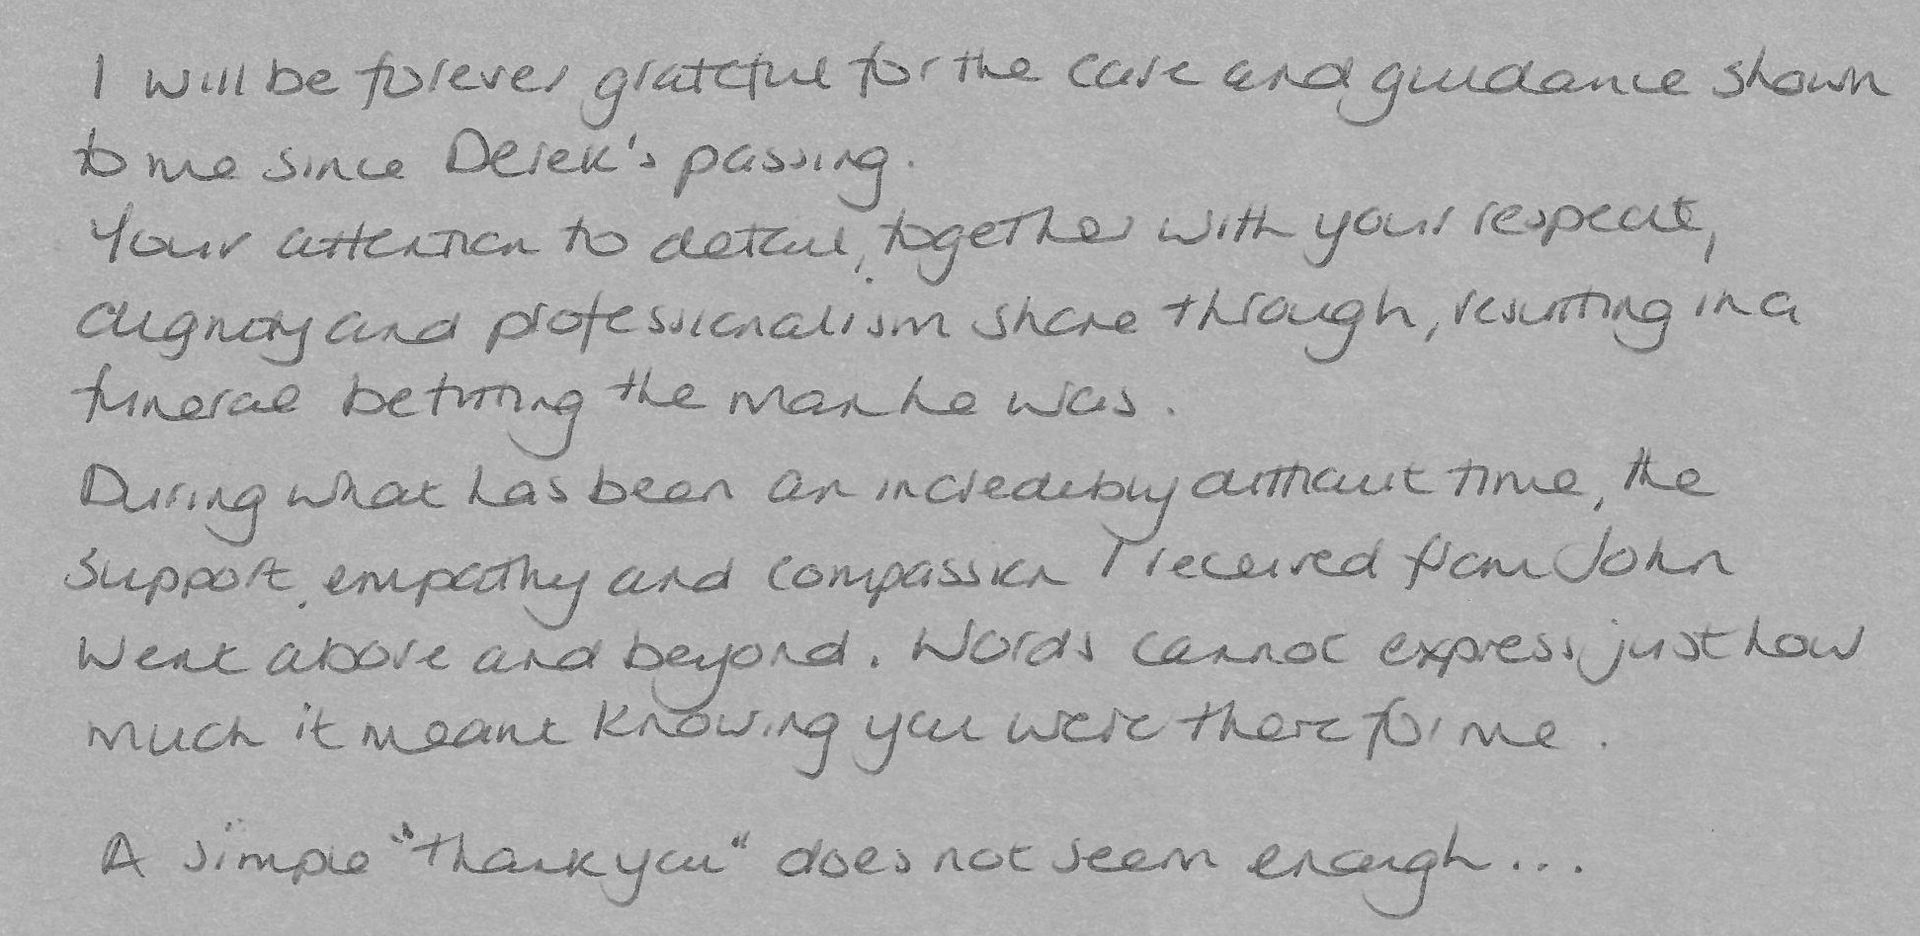 I will be forever grateful for the care and guidance shown
to me since Derek's passing.
Your attention to detail, together with your respect,
dignity and professionalism shone through, resulting in a
funeral befitting the man he was.
During what has been an incredibly difficult time, the
support, empathy and compassion I received from John
went above and beyond. Words cannot express just how
much it meant knowing you were there for me.
A simple "thank you" does not seem enough...